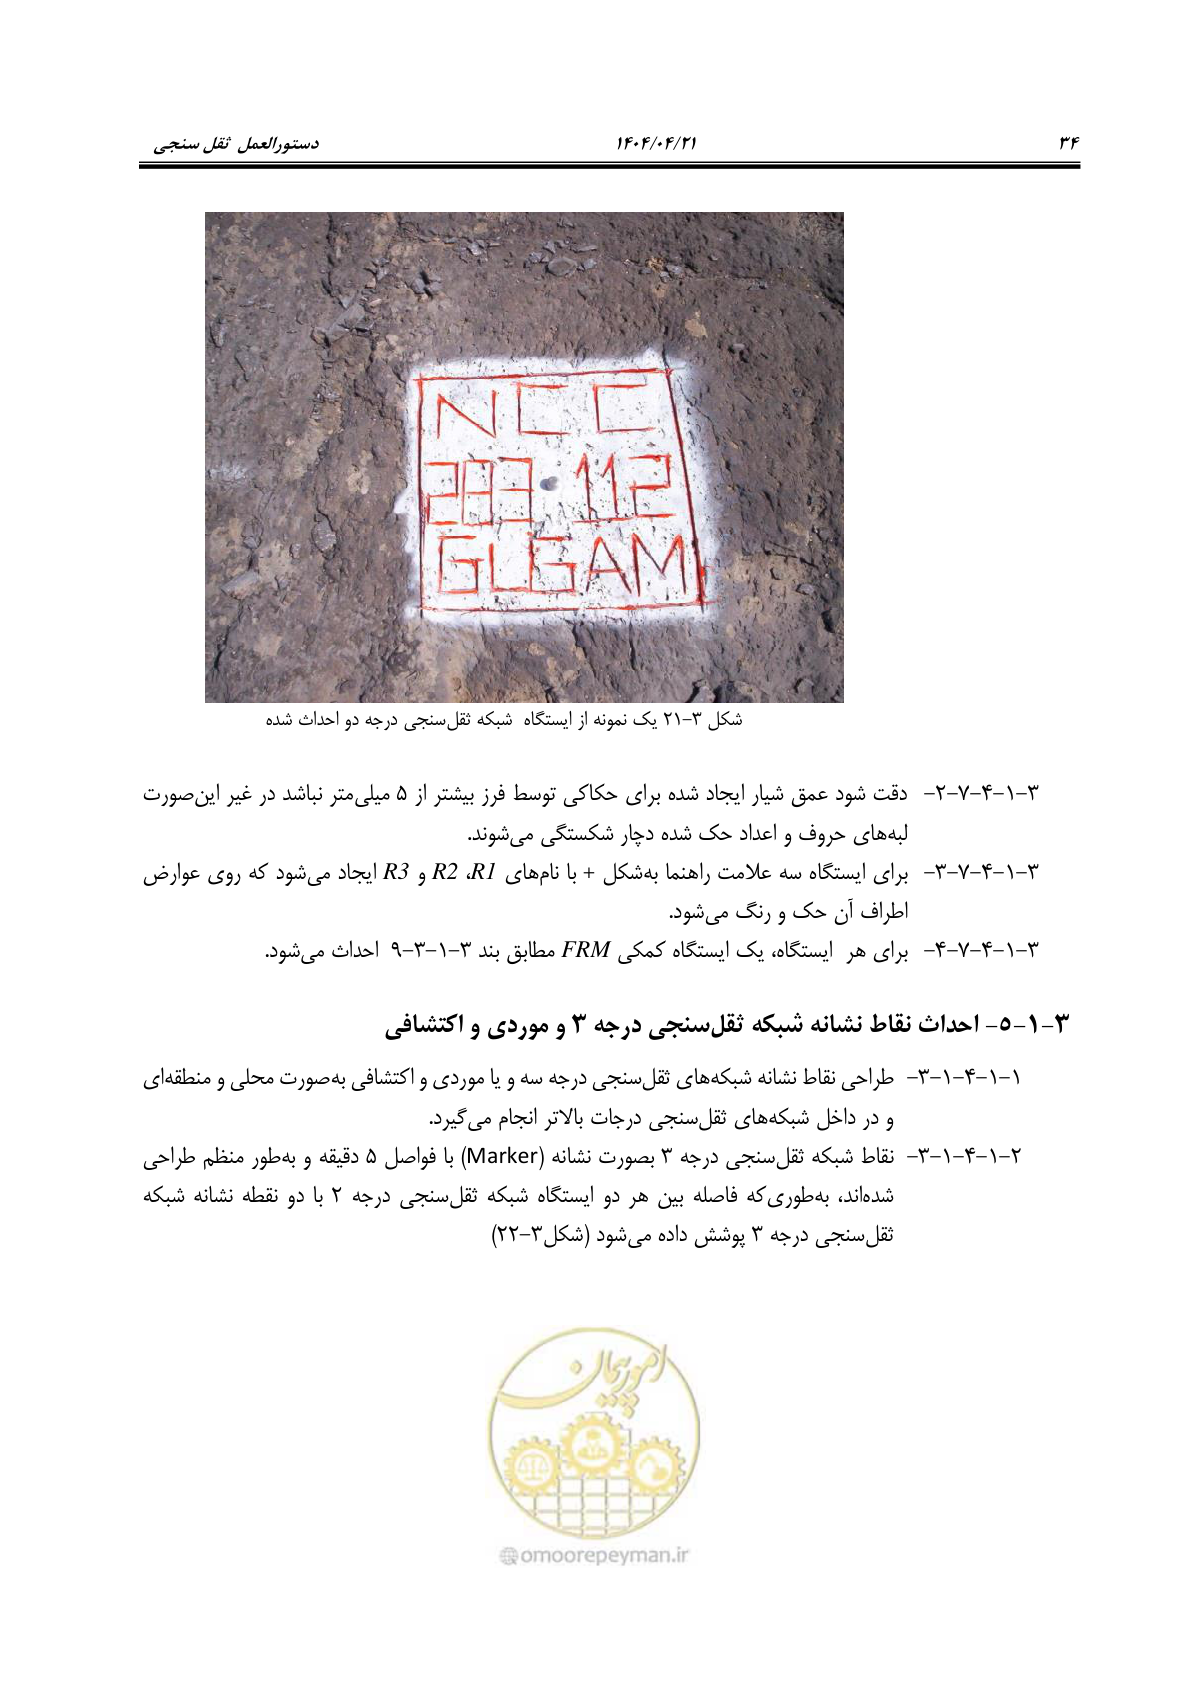 ۳۴ ۱۴۰۴/۰۴/۲۱ دستورالعمل ثقل سنجی
NCC
283 112
GLGAM
شکل ۳-۲۱ یک نمونه از ایستگاه شبکه ثقل‌سنجی درجه دو احداث شده
۳-۱-۴-۷-۲- دقت شود عمق شیار ایجاد شده برای حکاکی توسط فرز بیشتر از ۵ میلی‌متر نباشد در غیر این‌صورت
لبه‌های حروف و اعداد حک شده دچار شکستگی می‌شوند.
۳-۱-۴-۷-۳- برای ایستگاه سه علامت راهنما به‌شکل + با نام‌های R1، R2 و R3 ایجاد می‌شود که روی عوارض
اطراف آن حک و رنگ می‌شود.
۳-۱-۴-۷-۴- برای هر ایستگاه، یک ایستگاه کمکی FRM مطابق بند ۳-۱-۳-۹ احداث می‌شود.
۳-۱-۵- احداث نقاط نشانه شبکه ثقل‌سنجی درجه ۳ و موردی و اکتشافی
۳-۱-۴-۱-۱- طراحی نقاط نشانه شبکه‌های ثقل‌سنجی درجه سه و یا موردی و اکتشافی به‌صورت محلی و منطقه‌ای
و در داخل شبکه‌های ثقل‌سنجی درجات بالاتر انجام می‌گیرد.
۳-۱-۴-۱-۲- نقاط شبکه ثقل‌سنجی درجه ۳ بصورت نشانه (Marker) با فواصل ۵ دقیقه و به‌طور منظم طراحی
شده‌اند، به‌طوری‌که فاصله بین هر دو ایستگاه شبکه ثقل‌سنجی درجه ۲ با دو نقطه نشانه شبکه
ثقل‌سنجی درجه ۳ پوشش داده می‌شود (شکل۳-۲۲)
امور پیمان
omoorepeyman.ir